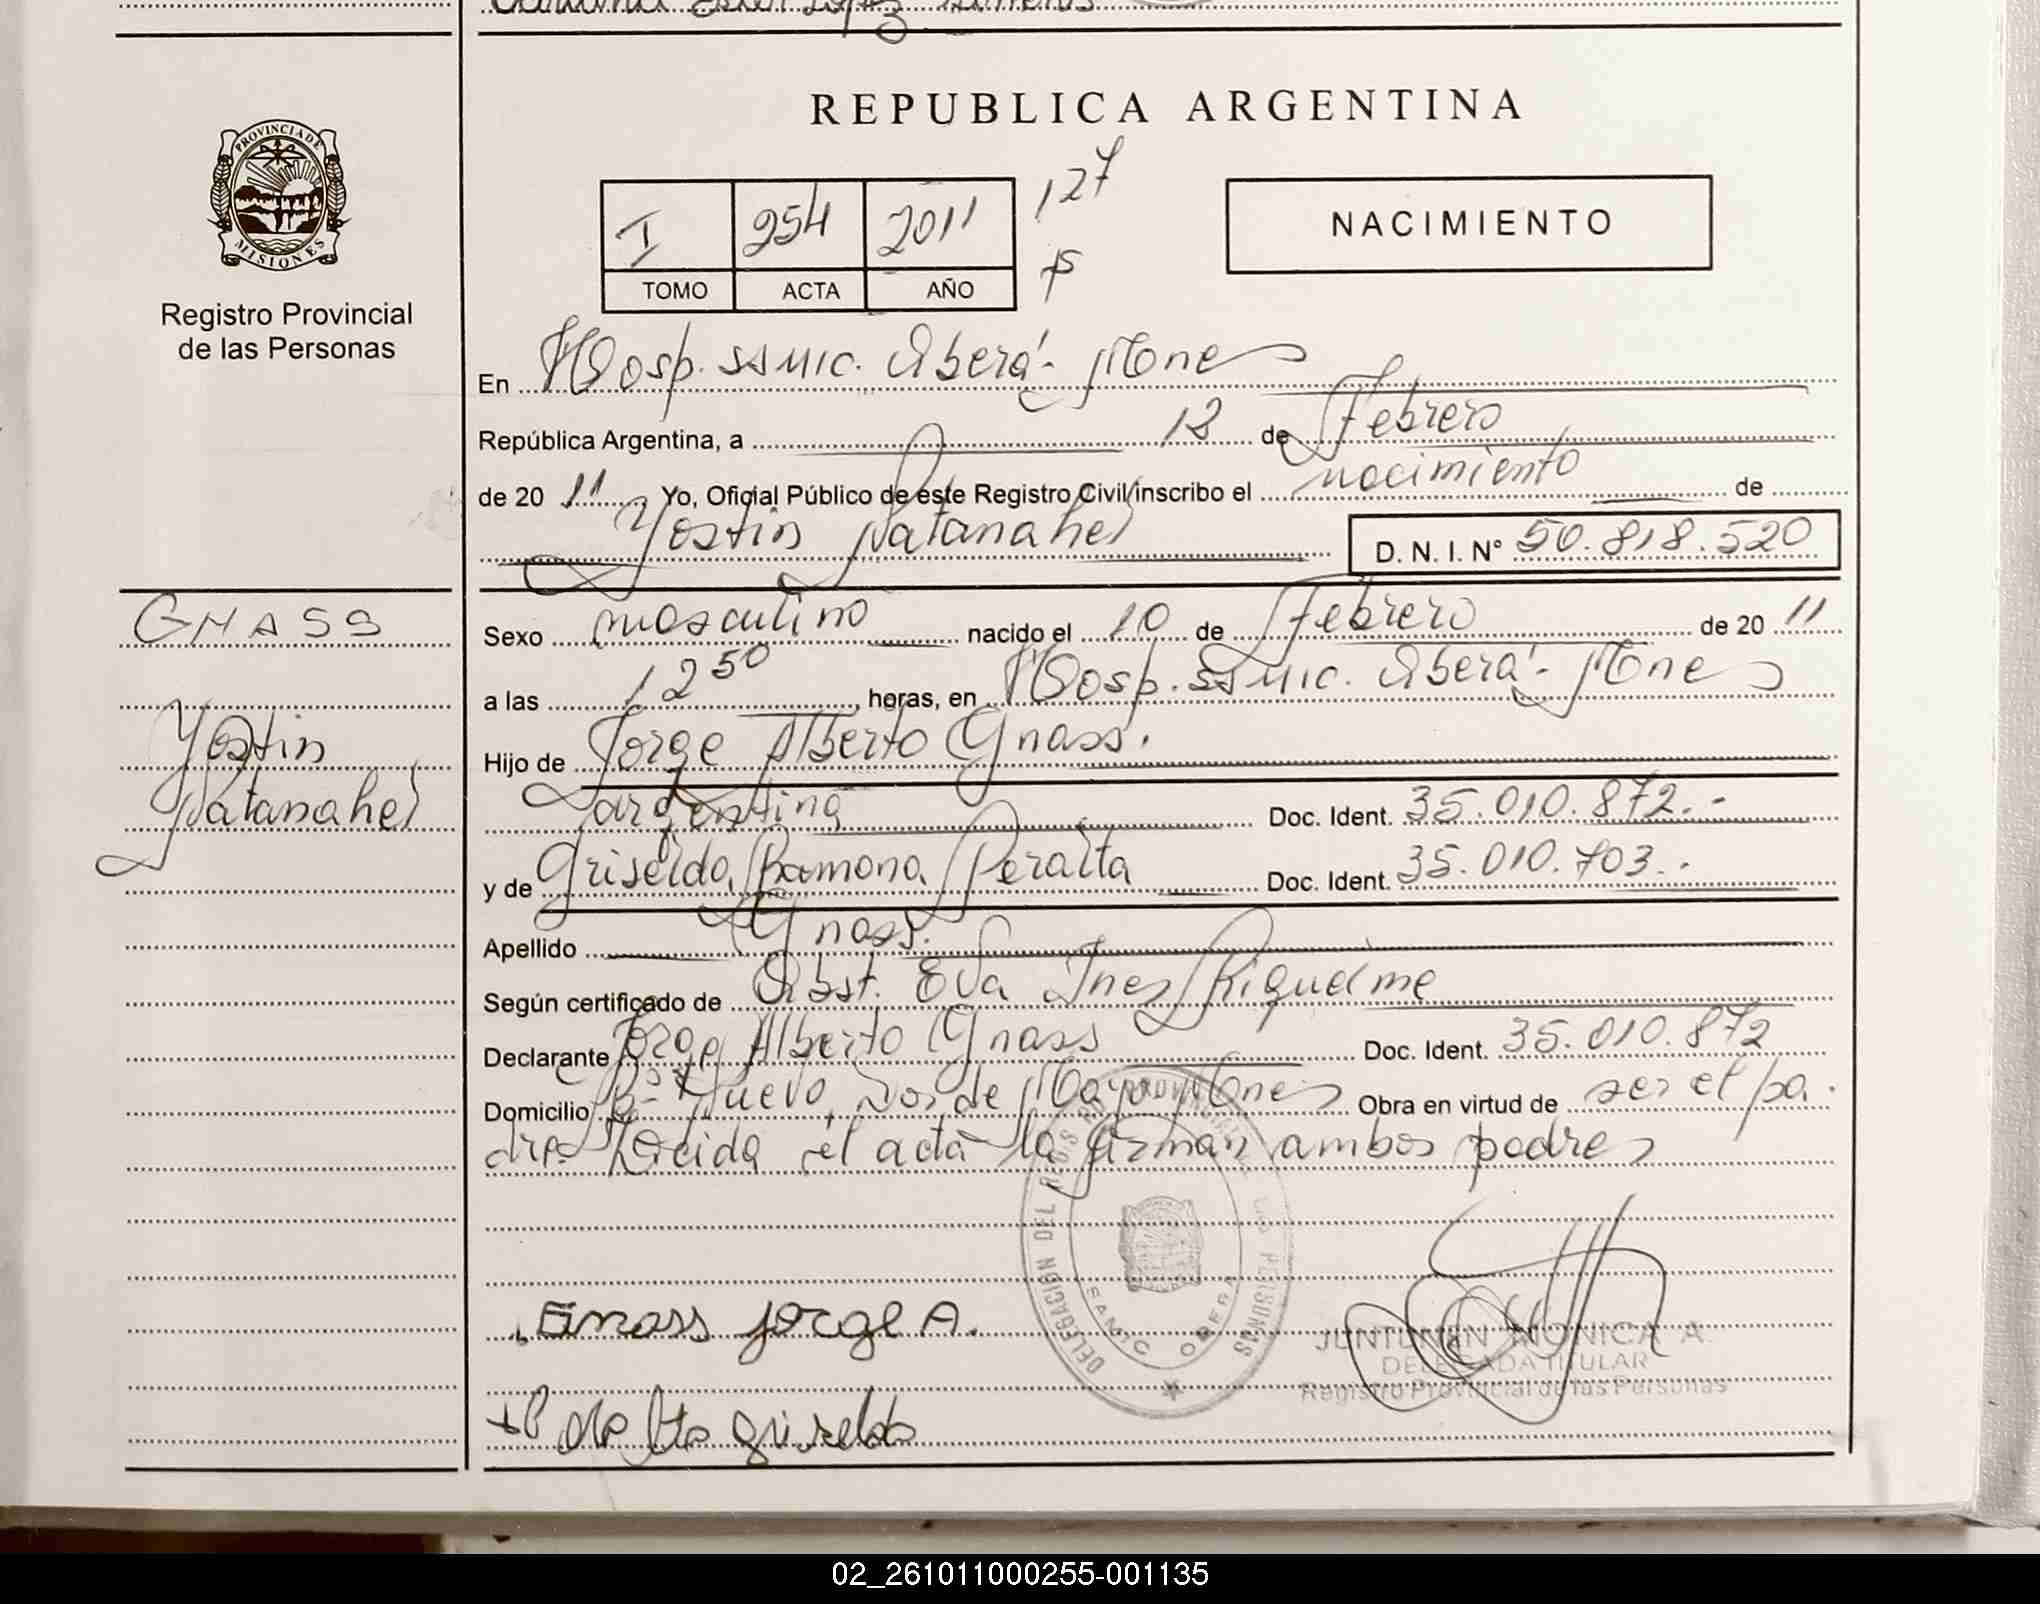 PROVINCIA DE
MISIONES
Registro Provincial
de las Personas
REPUBLICA ARGENTINA
I 254 2011 127
TOMO ACTA AÑO
NACIMIENTO
En Hosp. SAMIC. Oberá - Mones
República Argentina, a 12 de Febrero
de 20 11 Yo, Oficial Público de este Registro Civil inscribo el nacimiento de
Yostin Natanahel D. N. I. N° 50.818.520
GNASS
Yostin
Natanahel
Sexo masculino nacido el 10 de Febrero de 20 11
a las 12 50 horas, en Hosp. SAMIC. Oberá - Mones
Hijo de Jorge Alberto Gnass.
argentina Doc. Ident. 35.010.872.-
y de Griselda Ramona Peralta Doc. Ident. 35.010.703.-
Apellido Gnass.
Según certificado de Obst. Eva Ines Riquelme
Declarante Jorge Alberto Gnass Doc. Ident. 35.010.872
Domicilio Bº Nuevo, Dos de Mayo Mones Obra en virtud de ser el pa
dre. Leída el acta la firman ambos padres
Gnass Jorge A.
griselda
DELEGACIÓN DEL REGISTRO PROVINCIAL DE LAS PERSONAS
OBERA
JUNTUNEN MONICA A.
DELEGADA TITULAR
Registro Provincial de las Personas
02_261011000255-001135